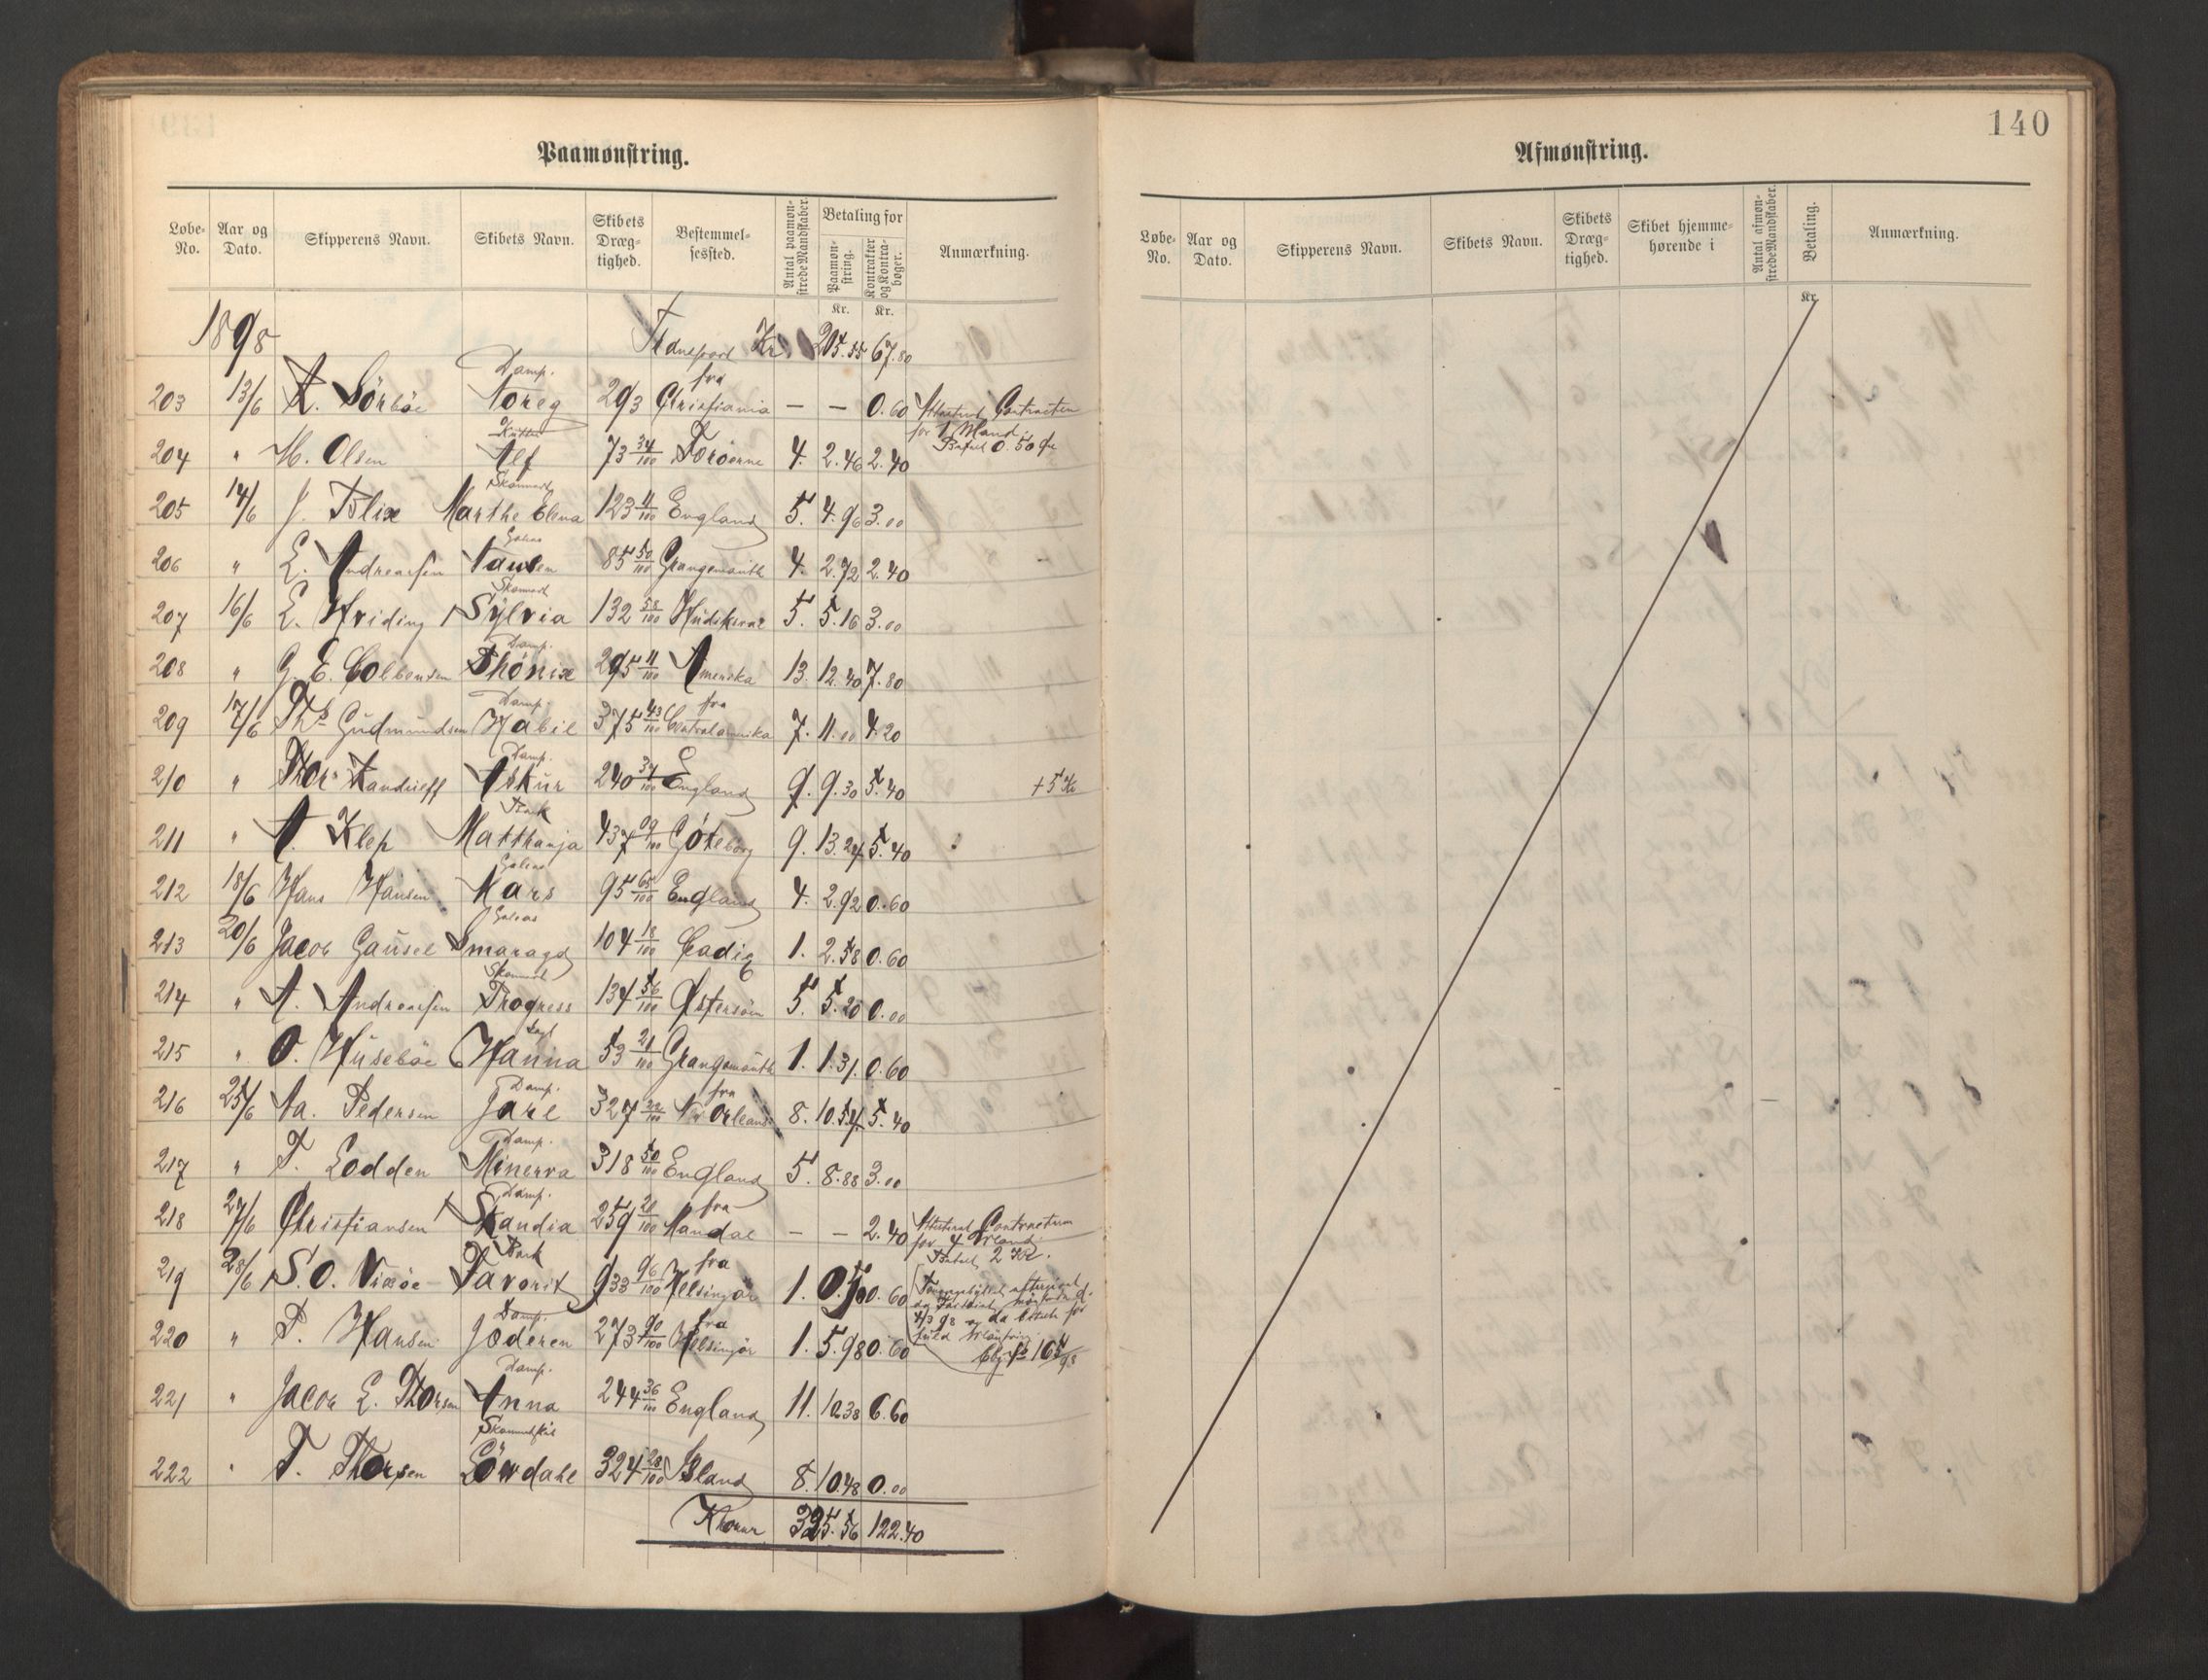 140
Paamønstring.
Løbe-No. Aar og Dato. Skipperens Navn. Skibets Navn. Skibets Dræg-tighed. Bestemmel-sessted. Antal paamøn-strede Mandskaber. Betaling for Paamøn-string. Kr. Kontrakter og Kontra-bøger. Kr. Anmærkning.
1898 Transport Kr. 205.55 67.80
203 13/6 Sörböe Damp. Noreg 293 fra Christiania — — 0.60 Attesteret Contracten for 1 Mand. Betalt 0.50
204 " H. Olsen Kutter Alf 73 34/100 Foröerne 4. 2.46 2.40
205 14/6 J. Blix Skonnert Marthe Elena 123 11/100 England 5. 4.96 3.00
206 " E. Andreasen Galeas 85 50/100 Grangemouth 4. 2.72 2.40
207 16/6 Skonnert Sylvia 132 58/100 5. 5.16 3.00
208 " G. E. Colbensen Damp. Phönix 295 11/100 Amerika 13. 12.40 7.80
209 17/6 Gudmundsen Damp. Habil 375 43/100 fra Centralamerika 7. 11.00 4.20
210 " Damp. Askur 240 34/100 England 9. 9.30 5.40 + 5 Kr
211 " A. Klep Bark Matthanja 437 09/100 Göteborg 9. 13.24 5.40
212 18/6 Hans Hansen Galeas Mars 95 65/100 England 4. 2.92 0.60
213 20/6 Jacob Gausel Galeas Smaragd 104 18/100 Cadiz 1. 2.58 0.60
214 " A. Andreasen Skonnert Progress 134 56/100 Østersöen 5. 5.20 0.00
215 " O. Huseböe Jagt Hanna 53 21/100 Grangemouth 1. 1.31 0.60
216 25/6 Na. Pedersen Damp. Jarl 327 22/100 fra N. Orleans 8. 10.54 5.40
217 " T. Lodden Damp. Minerva 318 50/100 England 5 8.88 3.00
218 27/6 Christiansen Damp. Skandia 259 fra Mandal — — 2.40 Attesteret Contracten for 4 Mand. Betalt 2 Kr.
219 28/6 S. O. Vixöe Bark Favorit 933 96/100 fra Helsingör 1. 0.50 0.60
220 " P. Hansen Damp. Jæderen 273 90/100 fra Helsingör 1. 5.98 0.60
221 " Jacob E. Thorsen Damp. Anna 244 36/100 England 11. 10.38 6.60
222 " T. Thorsen Skonnertskib Lövdahl 324 28/100 Island 8. 10.48 0.00
Kroner 325.56 122.40
Afmønstring.
Løbe-No. Aar og Dato. Skipperens Navn. Skibets Navn. Skibets Dræg-tighed. Skibet hjemme-hørende i Antal afmøn-strede Mandskaber. Betaling. Kr. Anmærkning.